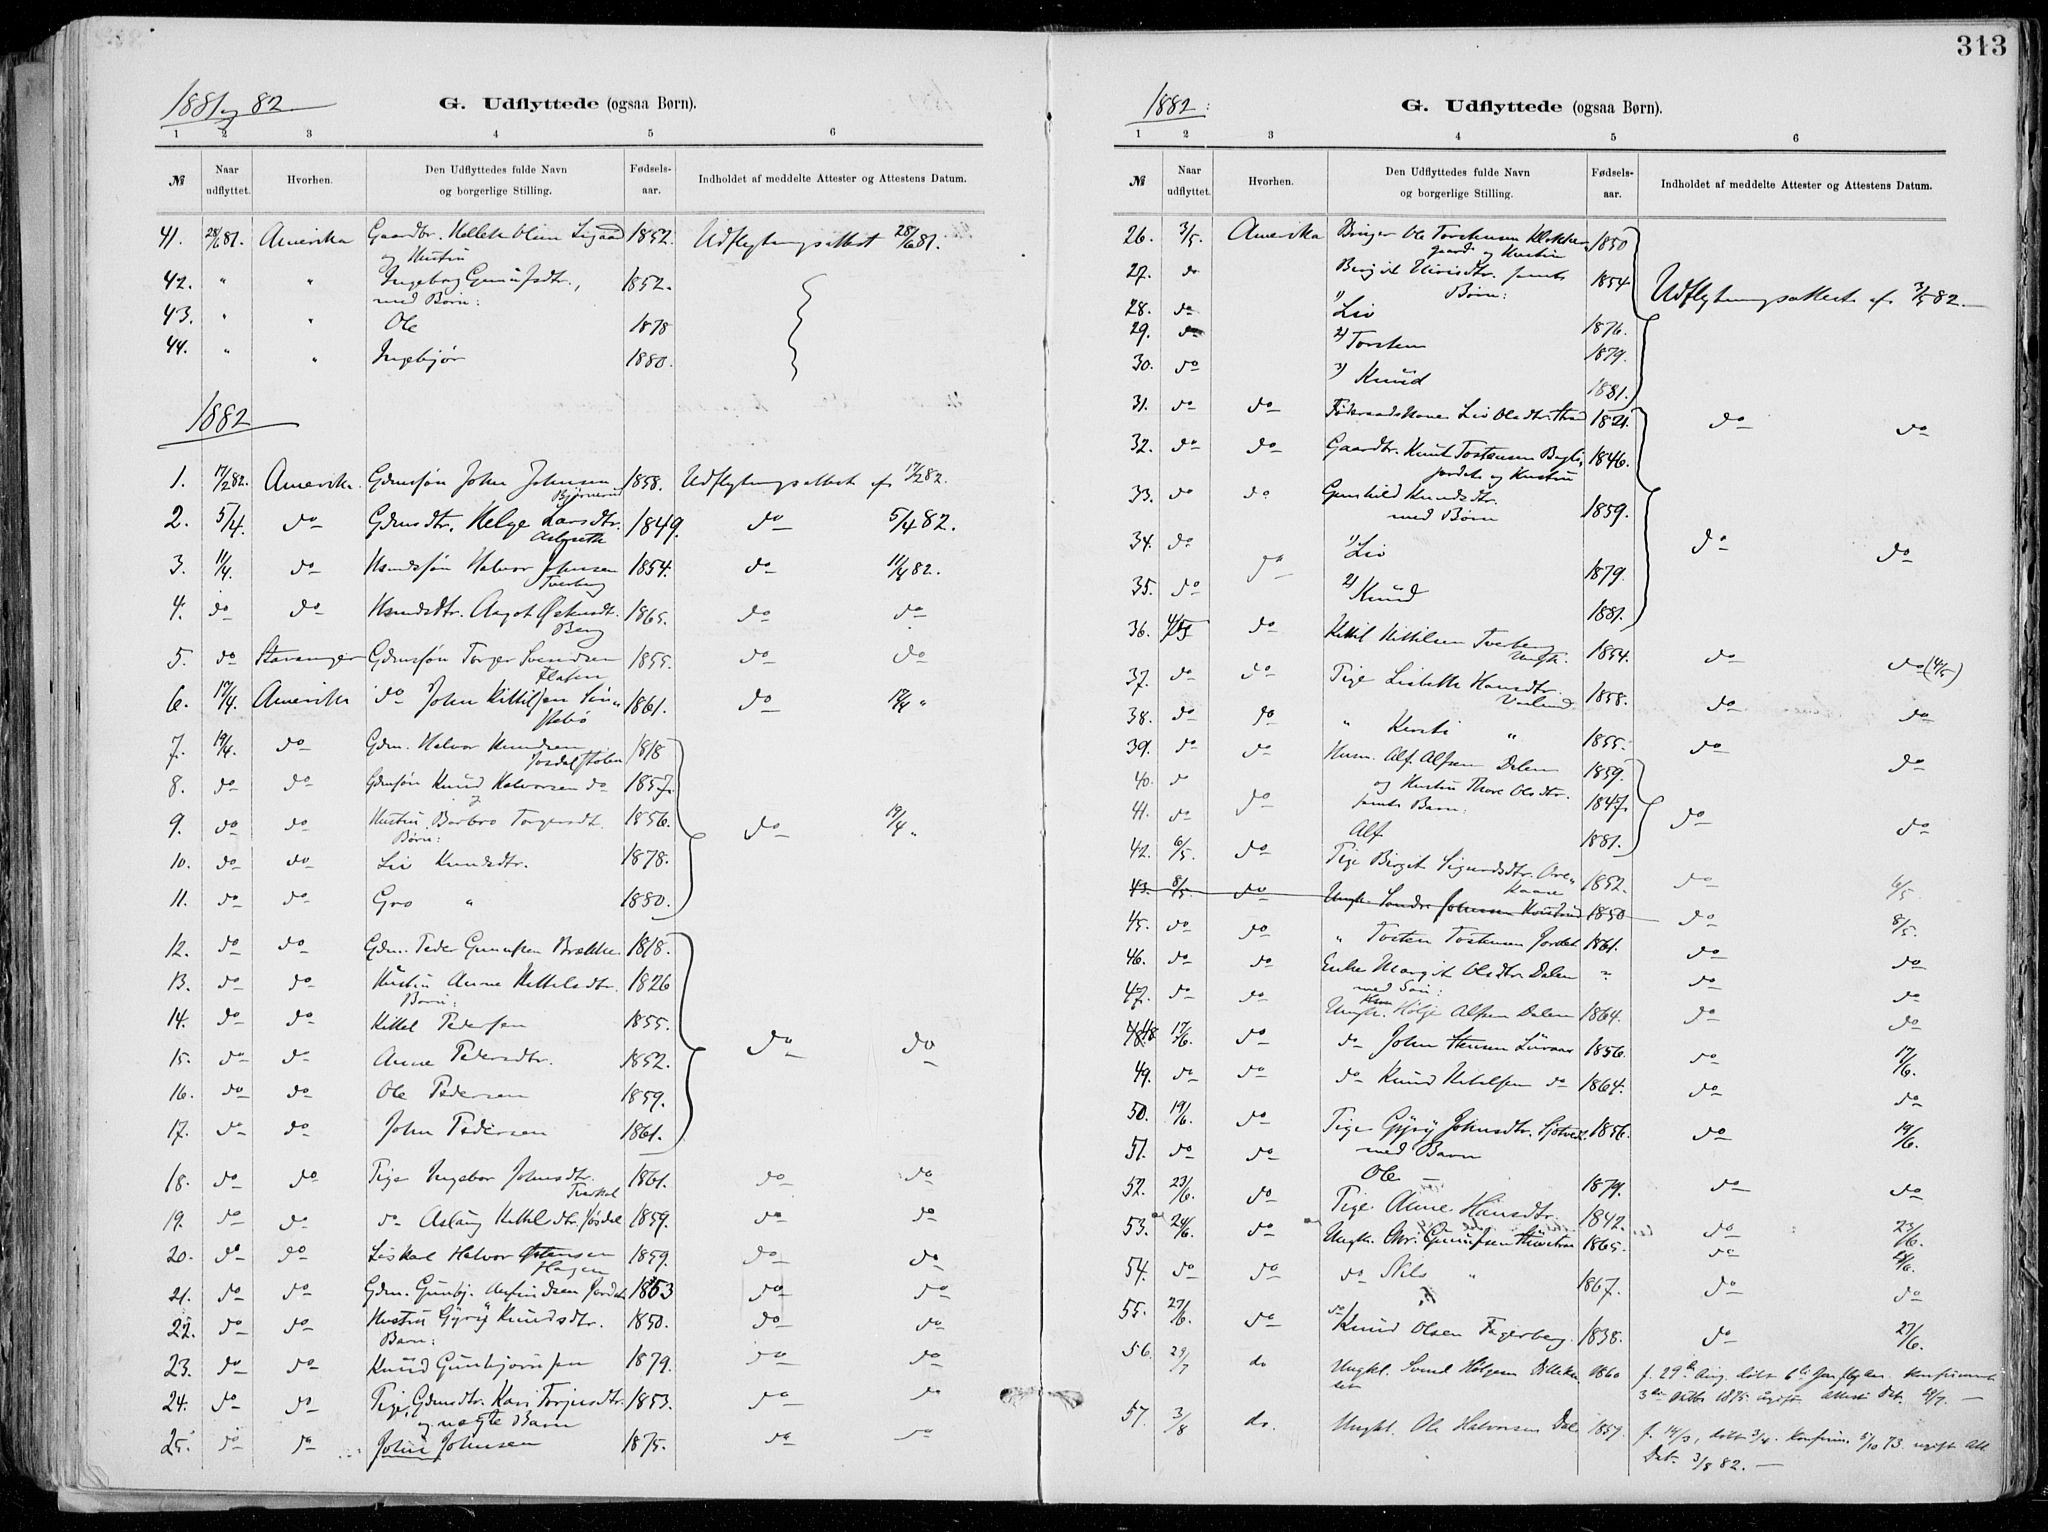 1881 og 82
G. Udflyttede (ogsaa Børn).
1 2 3 4 5 6
№ Naar udflyttet. Hvorhen. Den Udflyttedes fulde Navn og borgerlige Stilling. Fødselsaar. Indholdet af meddelte Attester og Attestens Datum.
41. 28/6 81. Amerika Gaardbr. 1852. Udflytningsattest 28/6 81.
og Hustru
42. " " Ingeborg Gunufsdtr., 1852.
med Børn:
43. " " Ole 1878
44. " " Ingebjør 1880.
1882
1. 17/2 82. Amerika. Gdmsøn John Johnsen 1858. Udflytningsattest af 17/2 82.
Bjørnerud
2. 5/4. do Gdmsdtr. Helge Larsdtr. 1849. do 5/4 82.
3. 11/4. do Hmdsøn Halvor Johnsen 1854. do 11/4 82.
Tverberg
4. do do Hsmdsdtr. Aagot 1865. do do
Berg
5. do Stavanger Gdmsøn Torger Svendsen 1855. do do
6. 17/4. Amerika do John Kittilsen 1861. do 17/4 "
7. 19/4. do Gdm. Halvor Knudsen 1818
8. do do Gdmsøn Knud Halvorsen do 1857.
9. do do Hustru Barbro Torgersdt. 1856. do 19/4 "
Børn:
10. do do Liv Knudsdtr. 1878.
11. do do Gro " 1880.
12. do do Gdm. Peder Gunufsen Brække. 1818.
13. do do Hustru Anne Kittelsdtr. 1826
Børn:
14. do do Kittel Pedersen 1855.
15. do do Anne Pedersdtr. 1852. do do
16. do do Ole Pedersen 1859.
17. do do John Pedersen 1861.
18. do do Pige Ingebor Johnsdtr. 1861. do do
19. do do do Aslaug Kittelsdtr. Jøsdal 1859. do do
20. do do Halvor Østensen 1859. do do
Hagen
21. do do Gdm. Gunbj. Jordet 1853 do do
22. do do Hustru Gyrÿ Knudsdtr. 1850. do do
Barn:
23. do do Knud Gunbjørnsen 1879. do do
24. do do Pige, Gdmsdtr. Kari Torjusdtr. 1853. do do
og uægte Barn
25. do do John Johnsen 1875. do do
313
1882:
G. Udflyttede (ogsaa Børn).
1 2 3 4 5 6
№ Naar udflyttet. Hvorhen. Den Udflyttedes fulde Navn og borgerlige Stilling. Fødselsaar. Indholdet af meddelte Attester og Attestens Datum.
26. 3/5. Amerika Ole Torstensen Klokker 1850
gaard og Hustru
27. do Bergit samt 1854 Udflytningsattest af 3/5 82.
Børn:
28. do 1) Liv 1876.
29. do 2) Torsten 1879.
30. do 3) Knud 1881.
31. do do Føderaadskone Liv Olsdtr. 1821. do do
32. do do Gaardbr. Knut Tostensen 1846.
jordet og Hustru
33. do do Gunhild Knudsdtr. 1859.
med Børn do do
34. do do 1) Liv 1879.
35. do 2) Knud 1881.
36. 4/5 do Kittil Kittilsen Tverberg 1854. do do (4/5)
Ungk.
37. do do Pige Lisbeth Hansdtr. 1858. do do
38. do do " Kersti " 1855. do do
39. do do Husm. Alf Alfsen Dalen 1859.
40. do og Hustru Thore Olsdtr. 1847.
41. do do samt Barn: do do
Alf 1881.
42. 6/5. do Pige Birgit Sigurdsdtr. 1852. do 6/5.
43. 8/5. do Ungk. Sondre Johnsen 1850 do 8/5.
45. do do " Tosten Tostensen Jordet 1861. do do
46. do do Enke Margit Olsdtr. Dalen " do do
med Søn:
47. do do Ungk. Hølje Alfsen Dalen 1864. do do
48 17/6. do do John Hansen Luraas 1856. do 17/6.
49. do do do Knud Kittilsen do 1864. do do
50. 19/6. do Pige Gÿrÿ Johnsdtr. 1856. do 19/6.
51. do do med Barn
Ole 1879. do do
52. 23/6. do Pige Anne Hansdtr. 1842. do 23/6.
53. 24/6. do Ungk. Gunufsen 1865. do 24/6.
54. do do do Nils " 1867. do do
55. 27/6. do do Knud Olsen Fagerberg. 1838. do 27/6.
56. 29/7 do Ungkl. Svend Hølgesen 1860 f. 29de Aug. døbt 6te
3die Oktbr. 1875. ugift. Attest. Dat. 29/7.
57. 3/8 do. Ungkl. Ole Halvorsen Dale 1857. f. 14/3, døbt 3/4. Konfirm. 5/10 73. ugift Att.
Dat. 3/8 82.